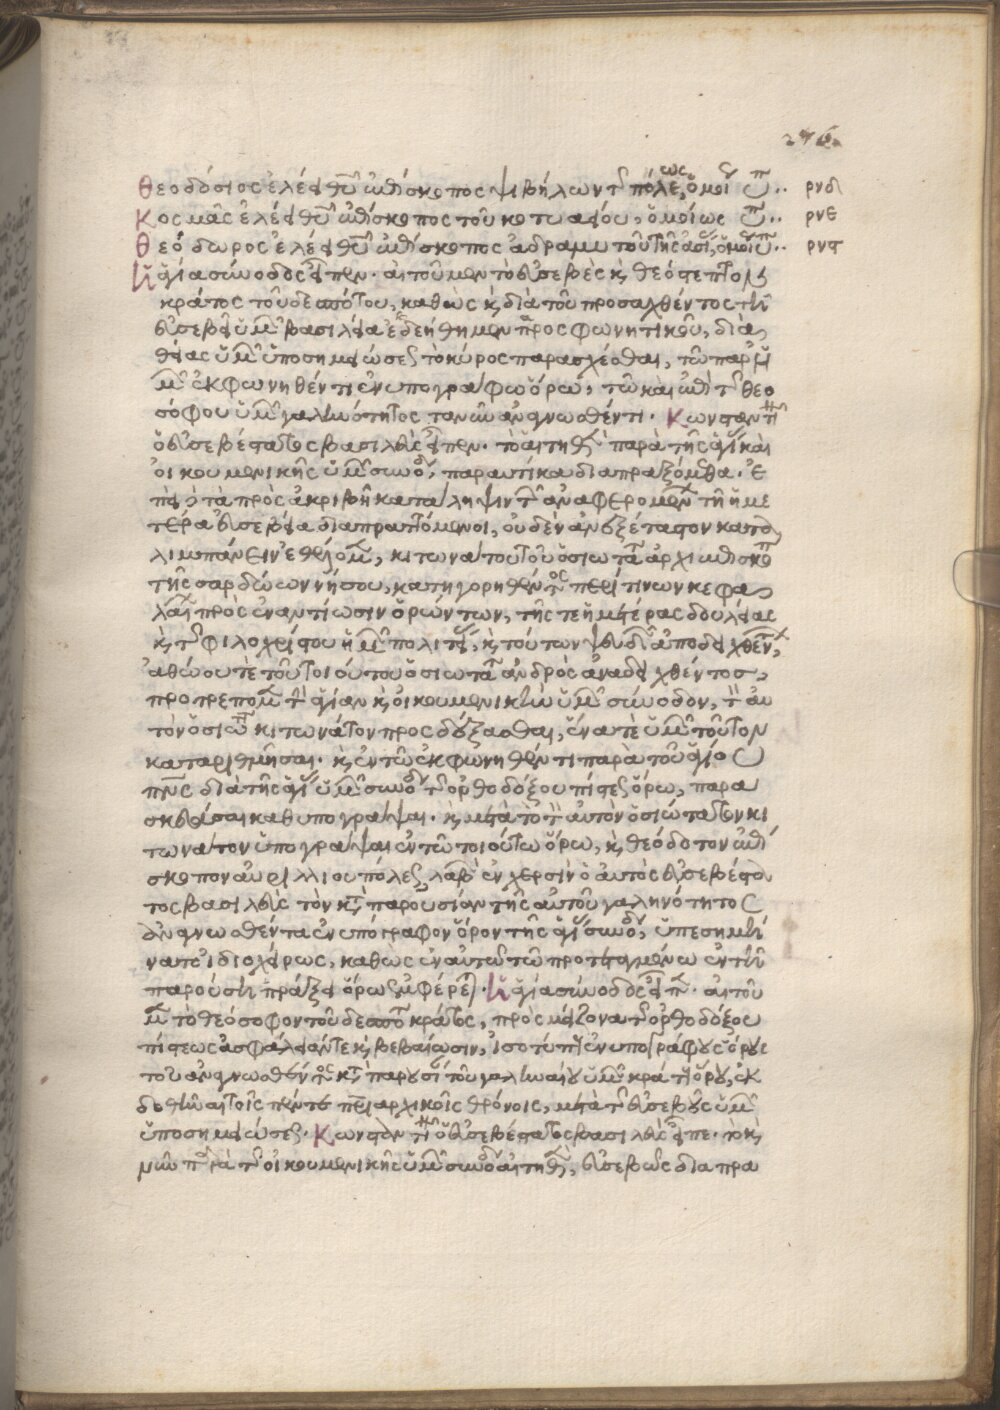 246
Θεοδόσιος ἐλέει θῦ ἐπίσκοπος ψιβήλων τῆς πόλεως, ὁμοί ὑπ.. ρνδ
Κοσμᾶς ἐλέει θῦ ἐπίσκοπος τοῦ κοτυαείου, ὁμοίως ὑπ.. ρνε
Θεόδωρος ἐλέει θῦ ἐπίσκοπος ἀδραμυτοῦ τῆς ἀσί, ὁμοί ὑπ.. ρνϛ
Ἡ ἁγία σύνοδος εἶπεν. αἰτοῦμεν τὸ εὐσεβὲς κ, θεόστεπτον
κράτος τοῦ δεσπότου, καθὼς κ, διὰ τοῦ προσαχθέντος τῆ
εὐσεβεῖ ὑμῶν βασιλεία ἐδεήθημεν προσφωνητικοῦ, διὰ
θείας ὑμῶν ὑποσημειώσεως τὸ κύρος παρασχέσθαι, τῶ παρ' ἡ
μῶν ἐκφωνηθέντι ἐνυπογράφω ὅρω, τῶ καὶ ἐπὶ τῆς θεο
σόφου ὑμῶν γαληνότητος τανῦν ἀναγνωσθέντι. Κωνσταντῖ
ὁ εὐσεβέστατος βασιλεὺς εἶπεν. τὰ αἰτηθέντα παρὰ τῆς ἁγί καὶ
οἰκουμενικῆς ὑμῶν συνόδ, παραυτίκα διαπραξόμεθα. ἐ
πεὶ δὲ τὰ πρὸς ἀκριβῆ κατάληψιν τῶν ἀναφερομένων τῆ ἡμε
τέρα εὐσεβεία διαπραττόμενοι, οὐδὲν ἀνεξέταστον κατα
λιμπάνειν ἐθέλομεν, κιτωνάτου τοῦ ὁσιωτά ἀρχιεπισκό
τῆς σαρδώων νήσου, κατηγορηθέντος περί τινων κεφα
λαί πρὸς ἐναντίωσιν ὁρώντων, τῆς τε ἡμετέρας δουλείας
κ, τῆς φιλοχρίστου ἡμῶν πολιτεί, κ, τούτων ψευδῶν ἀποδειχθέντων,
ἀθώου τὲ τοῦ τοιούτου ὁσιωτά ἀνδρὸς ἀναδειχθέντος,
προτρέπομεν τὴν ἁγίαν κ, οἰκουμενικὴν ὑμῶν σύνοδον, τὸν αὐ
τὸν ὁσιώτα κιτωνάτον προσδέξασθαι, ἕνα τὲ ὑμῶν τοῦτον
καταριθμῆσαι. κ, ἐν τῶ ἐκφωνηθέντι παρὰ τοῦ ἁγίου
πνς διὰ τῆς ἁγί ὑμῶν συνόδ τῆς ὀρθοδόξου πίστεως ὅρω, παρα
σκευάσαι καθυπογράψαι. κ, μετὰ τὸ τὸν αὐτὸν ὁσιώτατον κι
τωνάτον ὑπογράψαι ἐν τῶ τοιούτω ὅρω, κ, θεόδοτον ἐπί
σκοπον αὐριλλιουπόλεως, λαβὼν ἐν χερσὶν ὁ αὐτὸς εὐσεβέστα
τος βασιλεὺς τὸν κατὰ παρουσίαν τῆς αὐτοῦ γαληνότητος
ἀναγνωσθέντα ἐνυπόγραφον ὅρον τῆς ἁγί συνόδ, ὑπεσημή
νατο ἰδιοχείρως, καθὼς ἐν αὐτῶ τῶ προτεταγμένω ἐν τῆ
παρούση πράξει ὅρω ἐμφέρεται. Ἡ ἁγία σύνοδος εἶπ. αἰτοῦ
μεν τὸ θεόσοφον τοῦ δεσπότου κράτος, πρὸς μείζονα τῆς ὀρθοδόξου
πίστεως ἀσφάλειάν τε κ, βεβαίωσιν, ἰσοτύπους ἐνυπογράφους ὅρους
τοῦ ἀναγνωσθέντος κατὰ παρουσί τοῦ γαληναίου ὑμῶν κράτους ὅρου, ἐκ
δοθῆναι τοῖς πέντε πατριαρχικοῖς θρόνοις, μετὰ τῆς εὐσεβοῦς ὑμῶν
ὑποσημειώσεως. Κωνσταντῖ ὁ εὐσεβέστατος βασιλεὺς εἶπε. τὸ κ,
νῦν παρὰ τῆς οἰκουμενικῆς ὑμῶν συνόδου αἰτηθὲν, εὐσεβῶς διαπρα